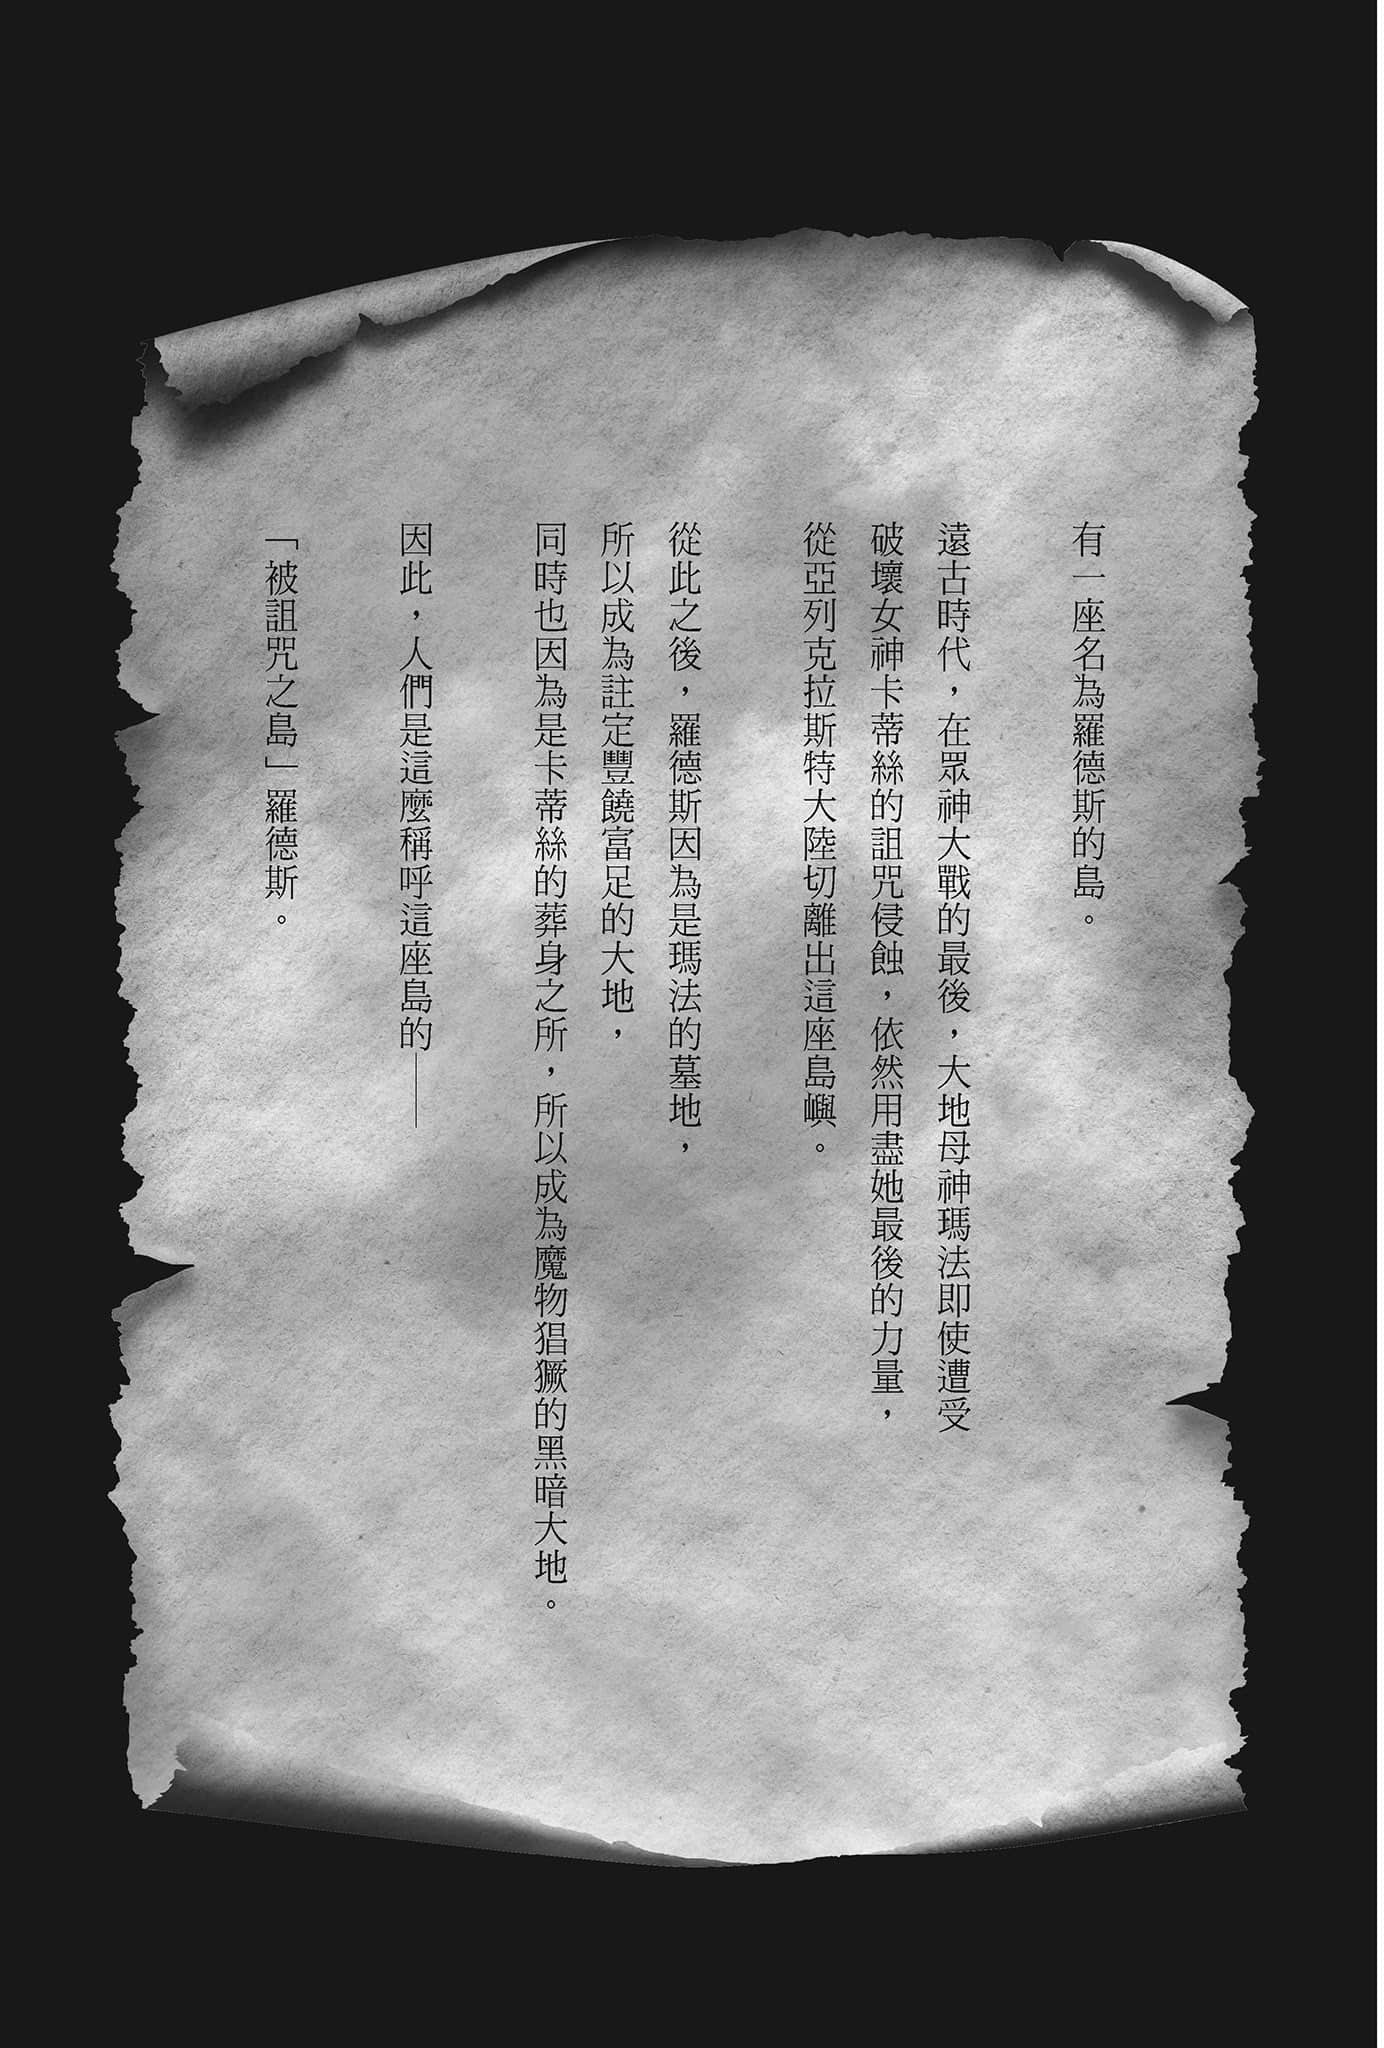 有一座名為羅德斯的島。
遠古時代，在眾神大戰的最後，大地母神瑪法即使遭受
破壞女神卡蒂絲的詛咒侵蝕，依然用盡她最後的力量，
從亞列克拉斯特大陸切離出這座島嶼。
從此之後，羅德斯因為是瑪法的墓地，
所以成為註定豐饒富足的大地，
同時也因為是卡蒂絲的葬身之所，所以成為魔物猖獗的黑暗大地。
因此，人們是這麼稱呼這座島的——
「被詛咒之島」羅德斯。